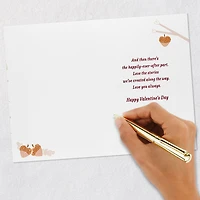 And then there's
the happily-ever-after part.
Love the stories
we've created along the way.
Love you always.
Happy Valentine's Day